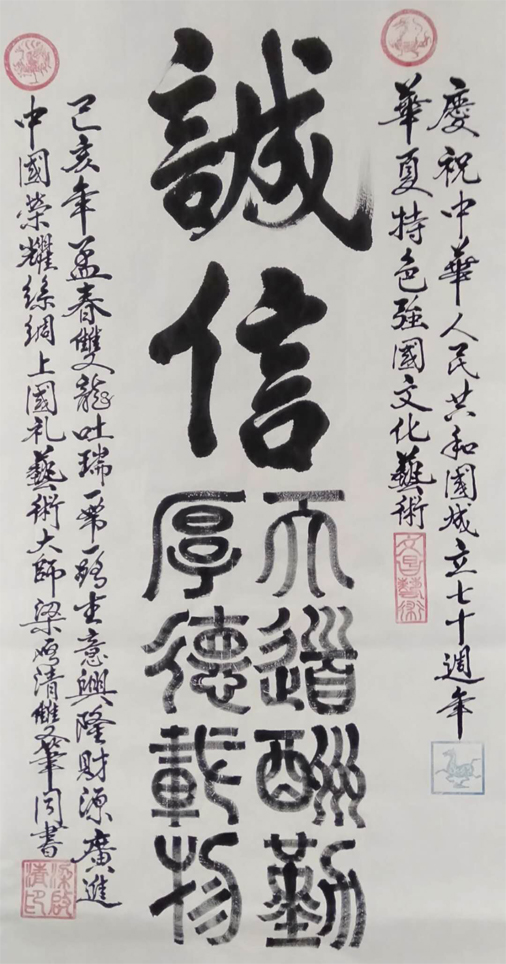 慶祝中華人民共和國成立七十週年
華夏特色強國文化藝術
文昌藝術
誠信
天道酬勤
厚德載物
己亥年孟春雙龍吐瑞一帶一路生意興隆財源廣進
中國榮耀絲綢上國礼藝術大師梁清雙筆同書